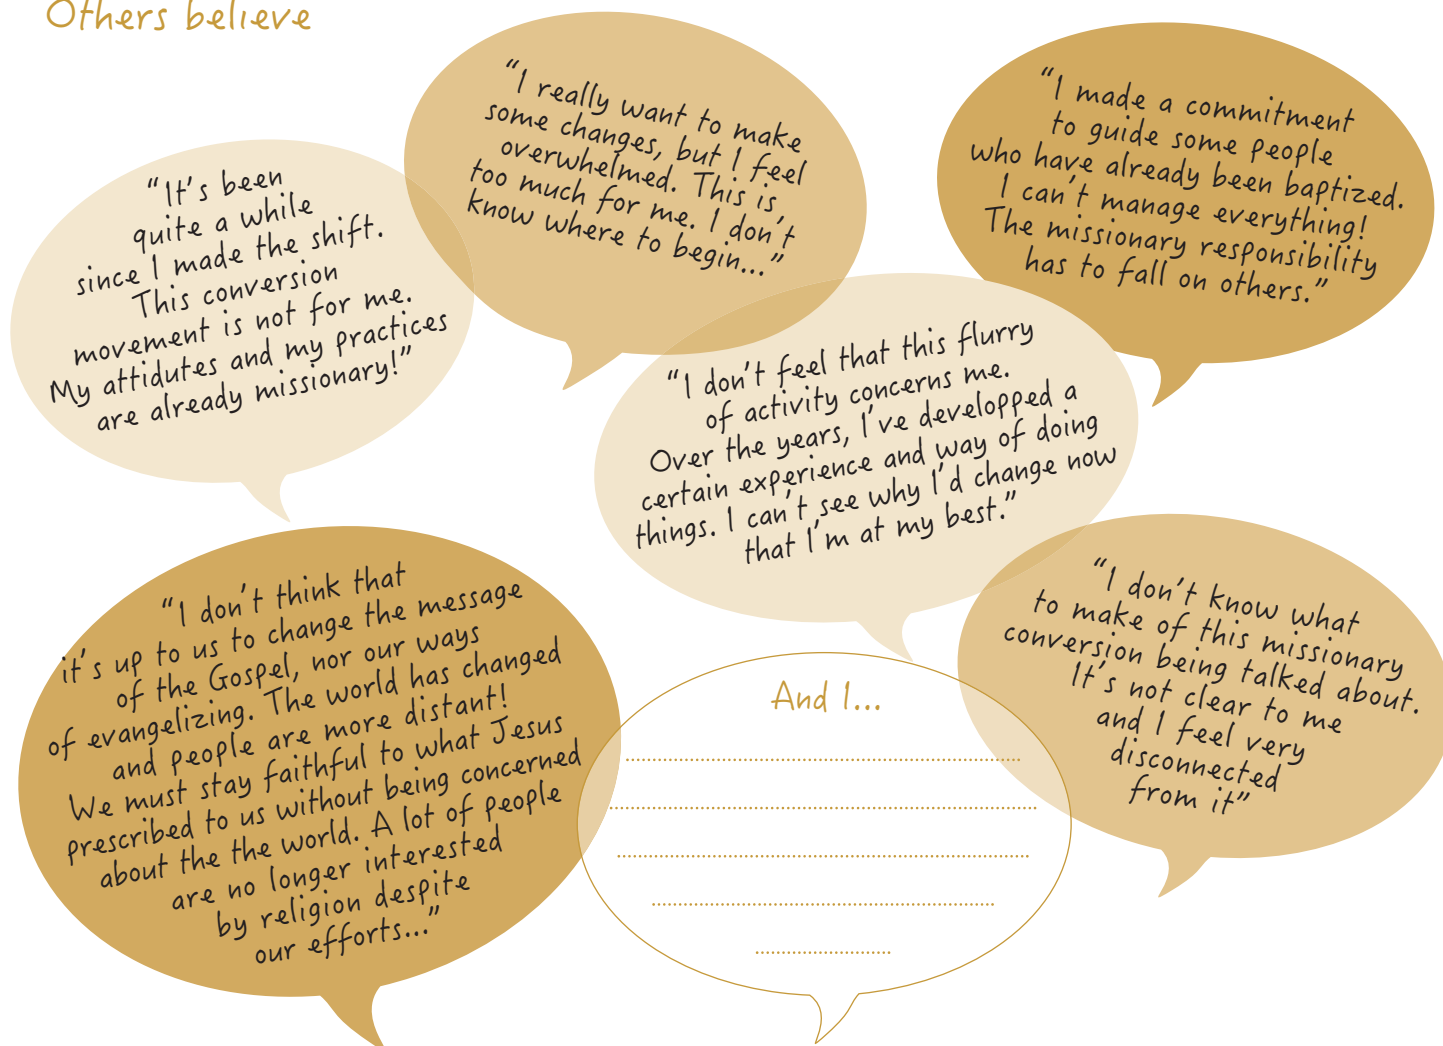 Others believe
“It’s been
quite a while
since I made the shift.
This conversion
movement is not for me.
My attidutes and my practices
are already missionary!”
“I really want to make
some changes, but I feel
overwhelmed. This is,
too much for me. I don’t
know where to begin...”
“I made a commitment
to guide some people
who have already been baptized.
I can’t manage everything!
The missionary responsibility
has to fall on others.”
“I don’t feel that this flurry
of activity concerns me.
Over the years, I’ve developped a
certain experience and way of doing
things. I can’t see why I’d change now
that I’m at my best.”
“I don’t think that
it’s up to us to change the message
of the Gospel, nor our ways
of evangelizing. The world has changed
and people are more distant!
We must stay faithful to what Jesus
prescribed to us without being concerned
about the the world. A lot of people
are no longer interested
by religion despite
our efforts...”
“I don’t know what
to make of this missionary
conversion being talked about.
It’s not clear to me
and I feel very
disconnected
from it”
And I...